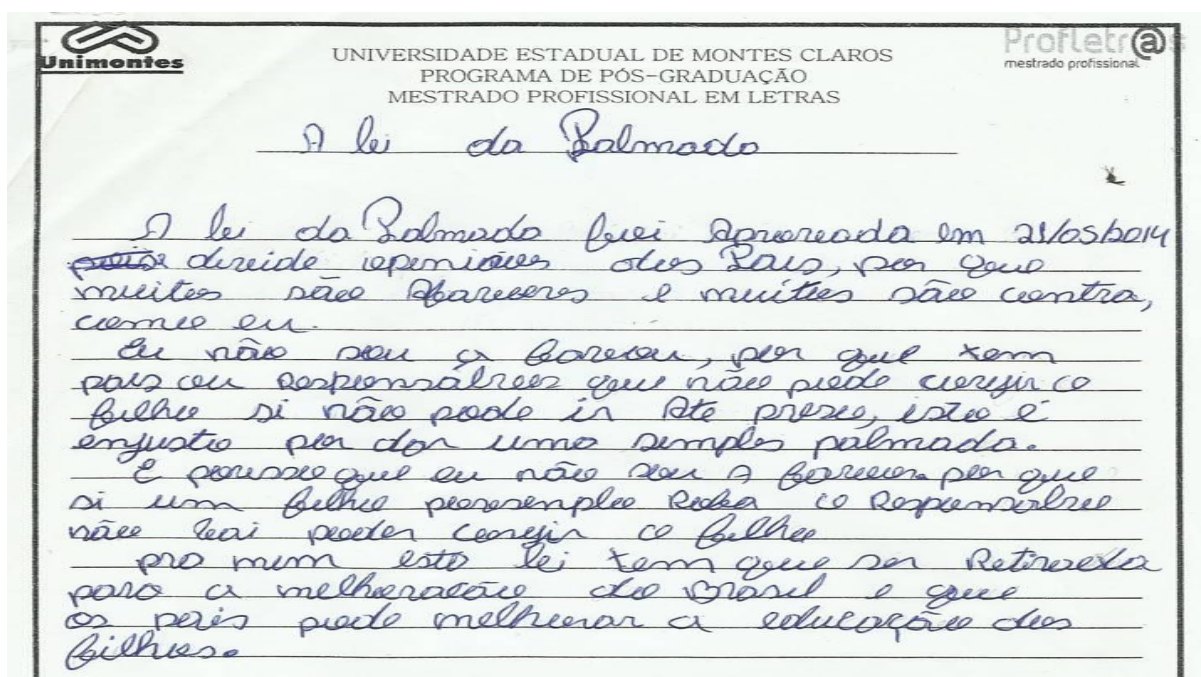 Unimontes
ProfLetr@s
mestrado profissional
UNIVERSIDADE ESTADUAL DE MONTES CLAROS
PROGRAMA DE PÓS-GRADUAÇÃO
MESTRADO PROFISSIONAL EM LETRAS
A lei da Palmada
A lei da Palmada foi Aprovada em 21/05/2014
divide opiniões dos Pais, por que
muitos são Afavores e muitos são contra,
como eu.
Eu não sou a favor, por que tem
pais ou Responsável que não pode corejir o
filho si não pode ir Ate preso, isto é
enjusto por dar uma simples palmada.
E porisso que eu não sou A favor por que
si um filho poresemplo o Responsavel
não vai poder corejir o filho
pra mim esta lei tem que ser Retirada
para a melhoração do Brasil e que
os pais pode melhorar a educação dos
filhos.